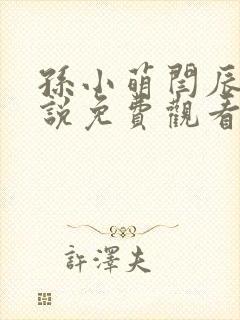 孫小萌閆辰
說免費觀看
許澤夫